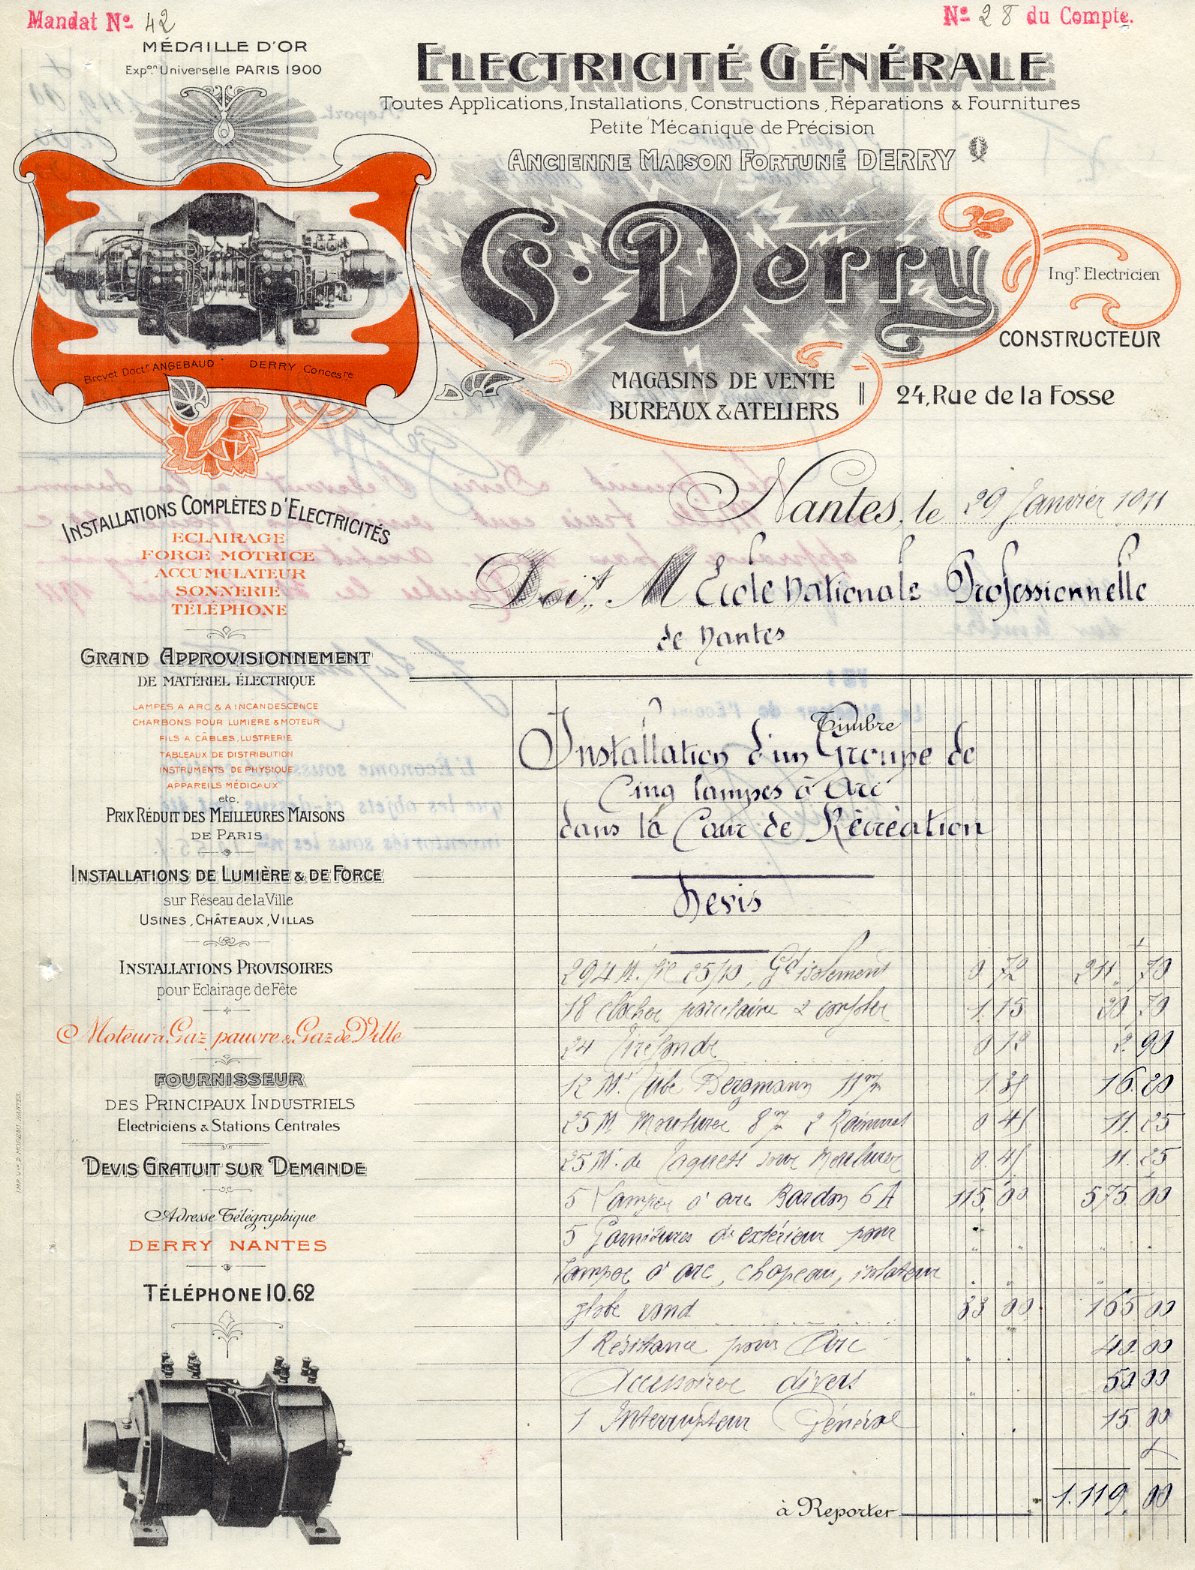 Mandat No. 42
No. 28 du Compte.
MÉDAILLE D'OR
Expon Universelle PARIS 1900
ELECTRICITÉ GÉNÉRALE
Toutes Applications, Installations, Constructions, Réparations & Fournitures
Petite Mécanique de Précision
ANCIENNE MAISON FORTUNÉ DERRY
G. Derry
Ingr. Electricien
CONSTRUCTEUR
Brevet Doctr ANGEBAUD DERRY Concesre
MAGASINS DE VENTE
BUREAUX & ATELIERS
24, Rue de la Fosse
Nantes, le 29 Janvier 1911
Doit M Ecole Nationale Professionnelle
de Nantes
INSTALLATIONS COMPLÈTES D'ELECTRICITÉS
ECLAIRAGE
FORCE MOTRICE
ACCUMULATEUR
SONNERIE
TÉLÉPHONE
GRAND APPROVISIONNEMENT
DE MATÉRIEL ÉLECTRIQUE
LAMPES A ARC & A INCANDESCENCE
CHARBONS POUR LUMIÈRE & MOTEUR
FILS & CÂBLES, LUSTRERIE
TABLEAUX DE DISTRIBUTION
INSTRUMENTS DE PHYSIQUE
APPAREILS MÉDICAUX
etc.
PRIX RÉDUIT DES MEILLEURES MAISONS
DE PARIS
INSTALLATIONS DE LUMIÈRE & DE FORCE
sur Réseau de la Ville
USINES, CHÂTEAUX, VILLAS
INSTALLATIONS PROVISOIRES
pour Eclairage de Fête
Moteur à Gaz pauvre & Gaz de Ville
FOURNISSEUR
DES PRINCIPAUX INDUSTRIELS
Electriciens & Stations Centrales
DEVIS GRATUIT SUR DEMANDE
Adresse Télégraphique
DERRY NANTES
TÉLÉPHONE 10.62
Timbre
Installation d'un Groupe de
Cinq lampes à Arc
dans la Cour de Récréation
Devis
294 M. fil 25/10, Gd isolement 0 72 211. 70
18 cloches porcelaine 1. 15 20 70
24 Tirefonds 0 12 2. 90
12 M. Tube Bergmann 11 m/m 1. 35 16. 20
25 M. Moulures 8 m/m 2 Rainures 0 45 11. 25
25 M. de Taquets sous Moulures 0. 45 11. 25
5 Lampes à arc Bardon 6 A 115, 00 575 00
5 Garnitures d'extérieur pour
lampes à arc, chapeau, isolateur
globe rond 33 00 165 00
1 Résistance pour Arc 40. 00
Accessoires divers 50 00
1 Interrupteur Général 15. 00
à Reporter 1.119. 00